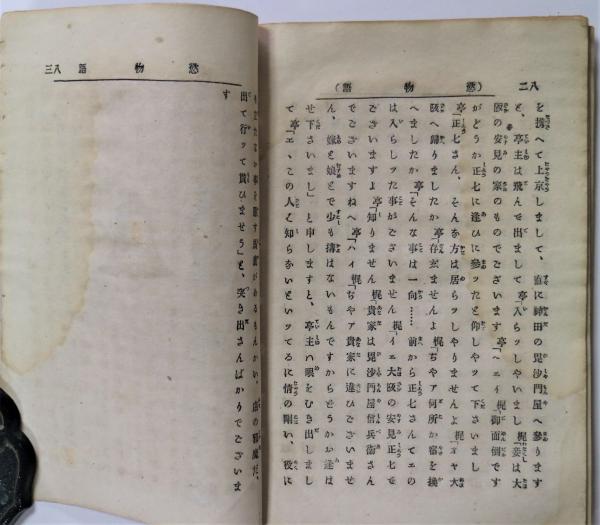 八二 （慾物語）
を携へて上京しまして、直に神田の毘沙門屋へ參ります
と、亭主は飛んで出まして亭「入らッしやいまし梶「妾は大
阪の安見の家のものでございます亭「ヘエイ梶「御面倒です
がどうか正七に逢ひに參ッたと仰しやッて下さいまし
亭「正七さん、そんな方は居らッしやりませんよ梶「オヤ大
阪へ歸りましたか亭「存玄ませんよ梶「ぢやア何所か宿を換
へましたか亭「そんな事は一向……前から正七さんてエの
は入らしッた事がございません梶「イエ大阪の安見正七で
ございますよ亭「知りません梶「貴家は毘沙門屋信兵衞さん
でございますねへ亭「ハイ梶「ぢやア貴家に違ひございませ
ん、嫁と娘とで少も搆はないもんですからどうか逢は
せ下さいまし」と申しますと、亭主ハ眼をむき出しまし
て亭「エ、この人ハ知らないといッてるに情の剛い、役に
慾物語 八三
出て行ッて貰ひませう」と、突き出さんばかりでございま
す